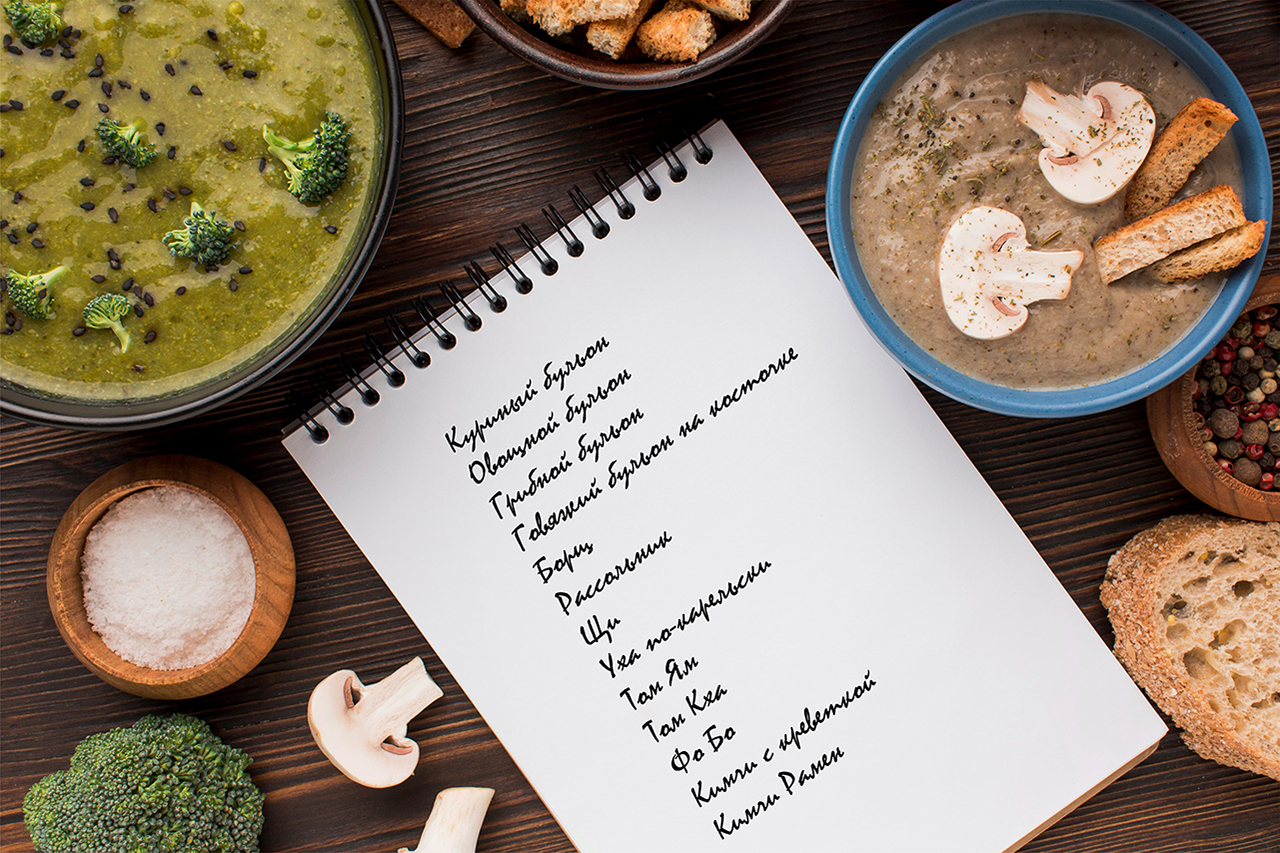 Куриный бульон
Овощной бульон
Грибной бульон
Говяжий бульон на косточке
Борщ
Рассольник
Щи
Уха по-карельски
Том Ям
Том Кха
Фо Бо
Кимчи с креветкой
Кимчи Рамен